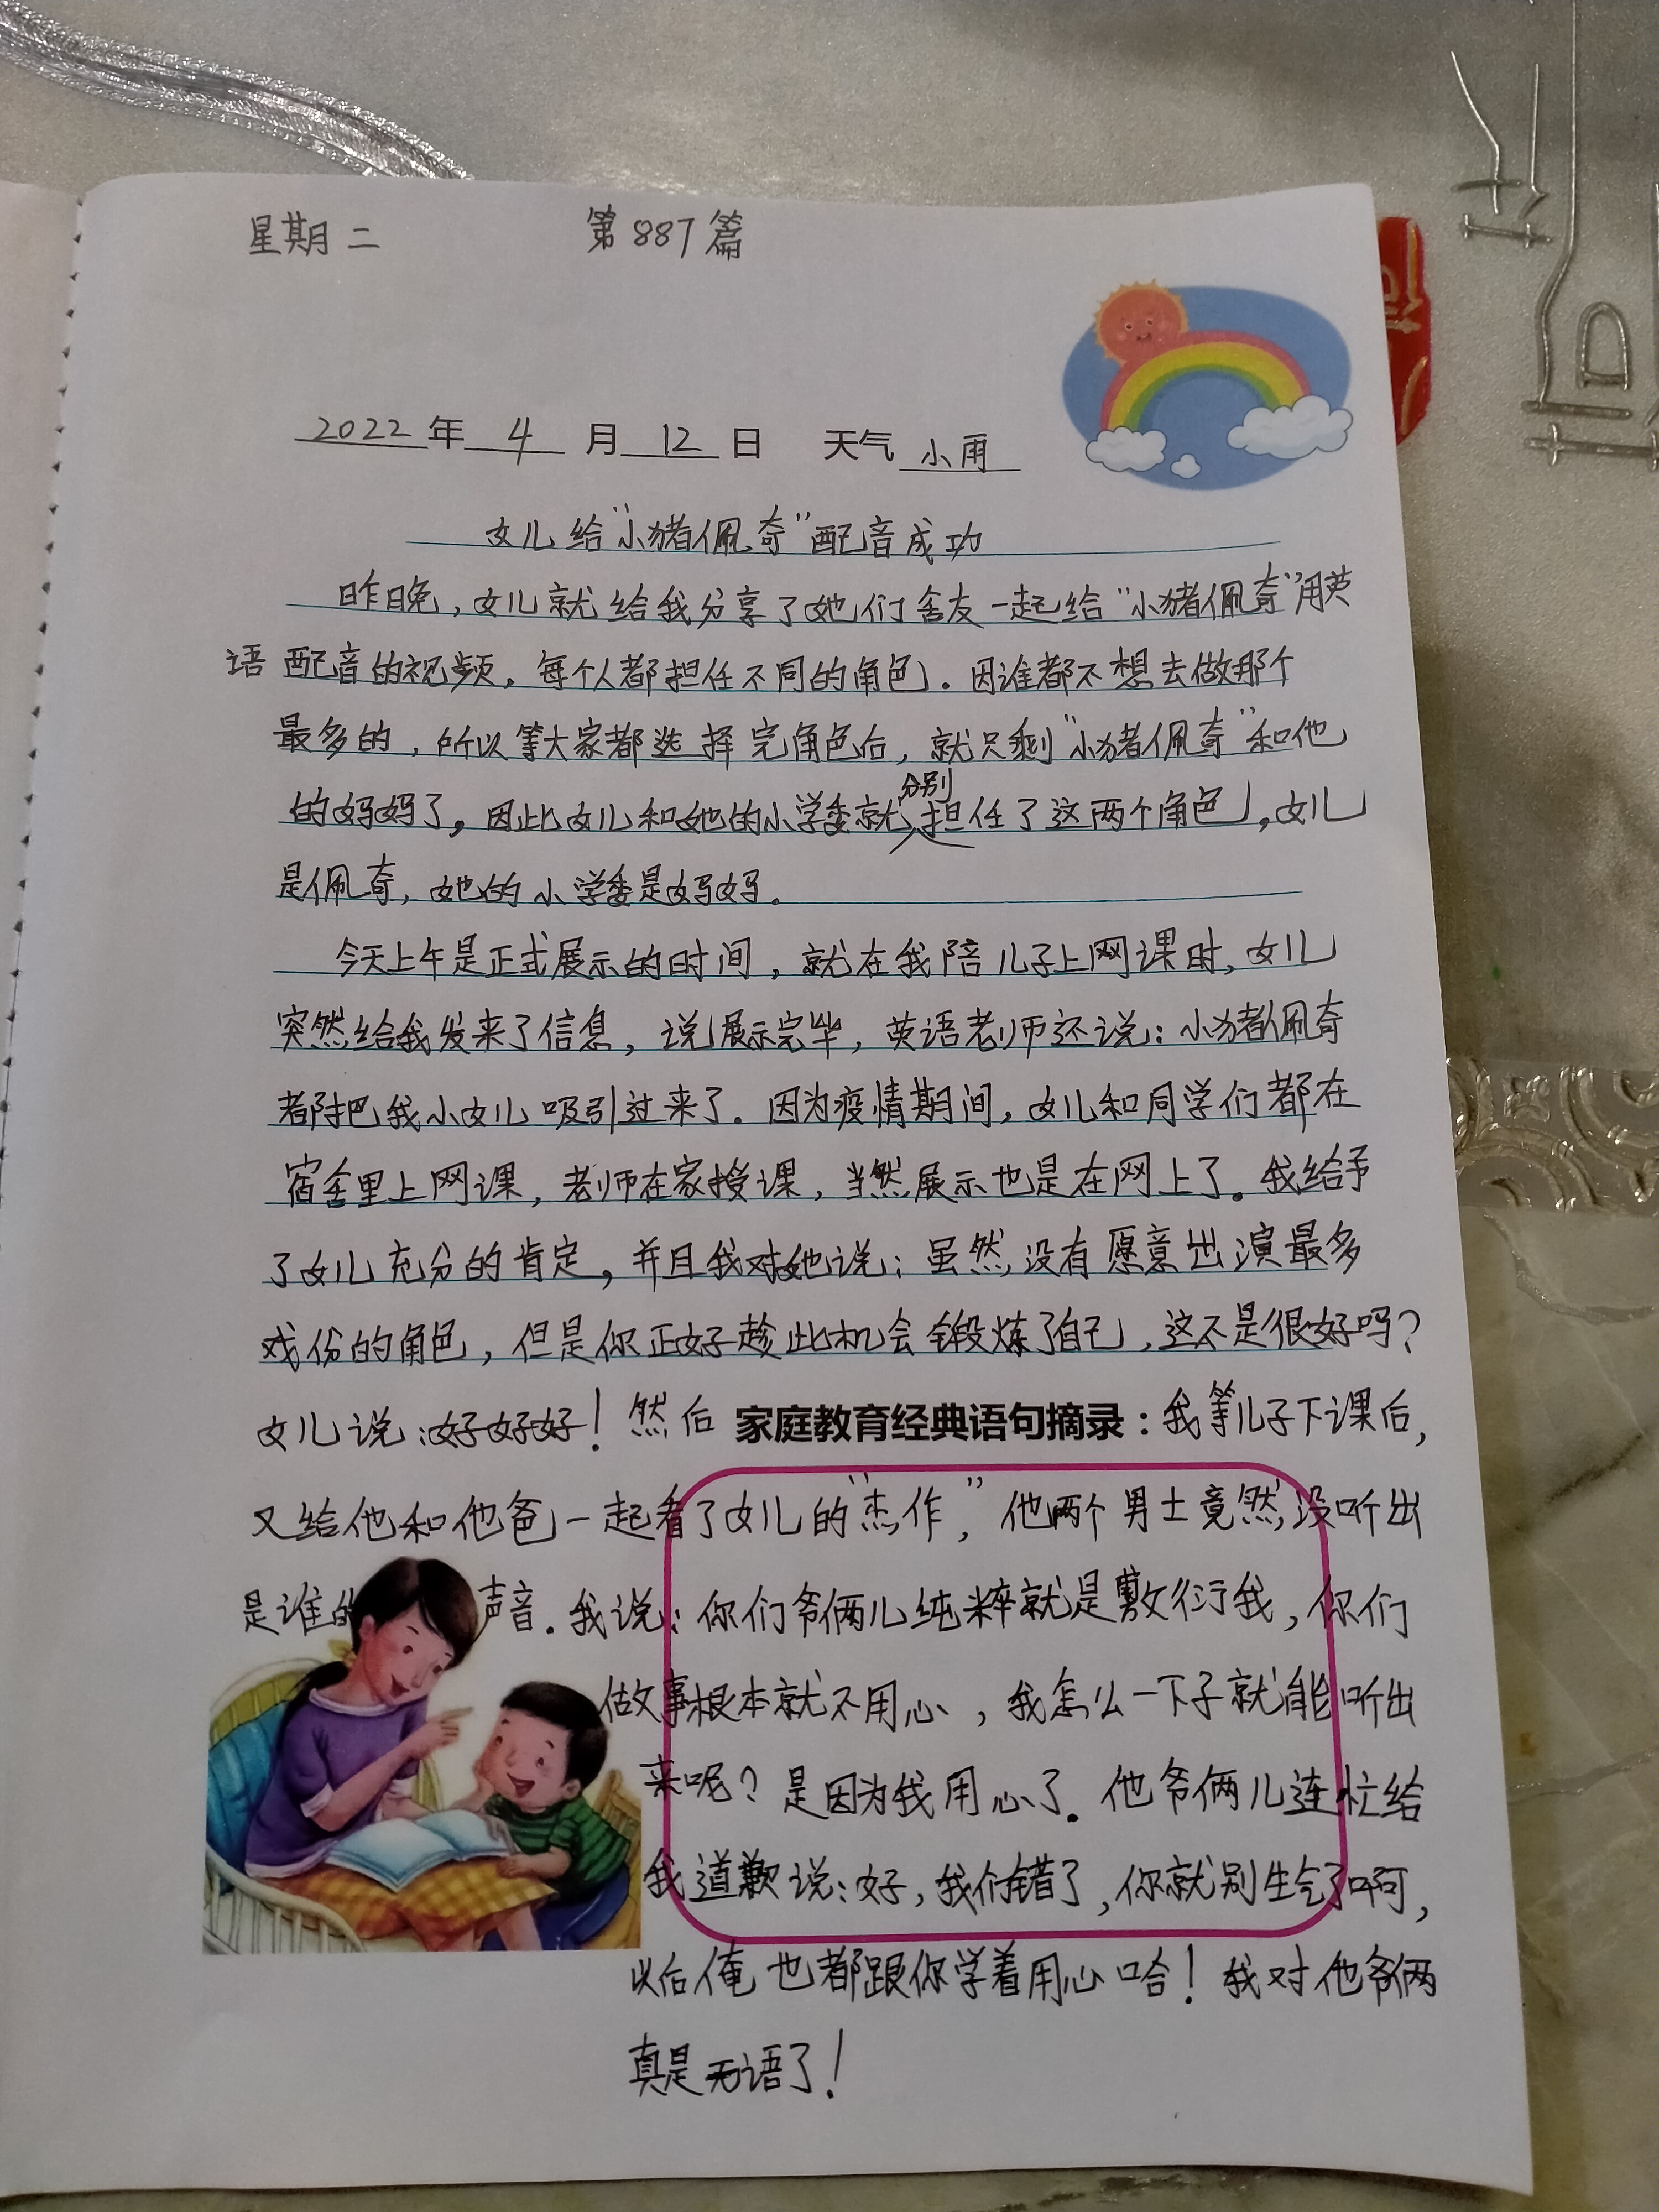 星期二 第887篇
2022年4月12日 天气 小雨
女儿给“小猪佩奇”配音成功
昨晚，女儿就给我分享了她们舍友一起给“小猪佩奇”用英
语配音的视频，每个人都担任不同的角色。因谁都不想去做那个
最多的，所以等大家都选择完角色后，就只剩“小猪佩奇”和他
的妈妈了，因此女儿和她的小学委就分别担任了这两个角色，女儿
是佩奇，她的小学委是妈妈。
今天上午是正式展示的时间，就在我陪儿子上网课时，女儿
突然给我发来了信息，说展示完毕，英语老师还说：小猪佩奇
都把我小女儿吸引过来了。因为疫情期间，女儿和同学们都在
宿舍里上网课，老师在家授课，当然展示也是在网上了。我给予
了女儿充分的肯定，并且我对她说：虽然没有愿意出演最多
戏份的角色，但是你正好趁此机会锻炼了自己，这不是很好吗？
女儿说：好好好！然后 家庭教育经典语句摘录：我等儿子下课后，
又给他和他爸一起看了女儿的“杰作”，他两个男士竟然没听出
是谁的声音。我说：你们爷俩儿纯粹就是敷衍我，你们
做事根本就不用心，我怎么一下子就能听出
来呢？是因为我用心了。他爷俩儿连忙给
我道歉说：好，我们错了，你就别生气了啊，
以后俺也都跟你学着用心哈！我对他爷俩
真是无语了！